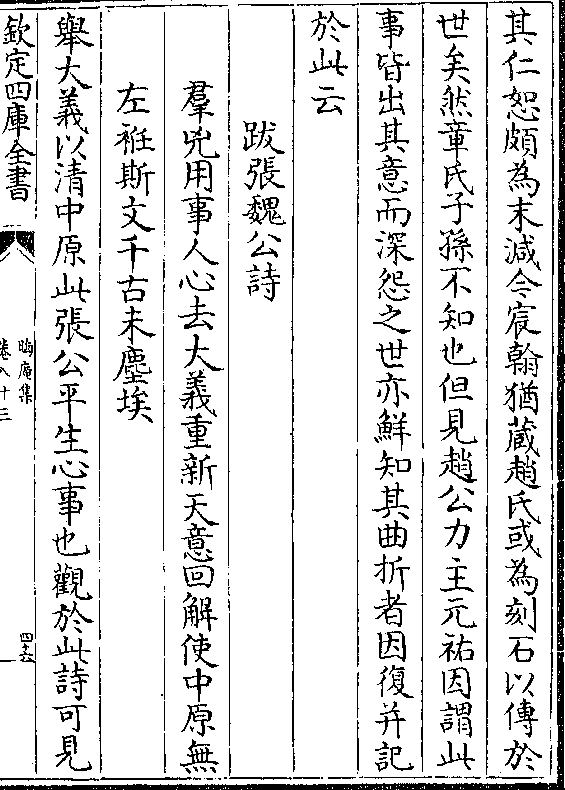 其仁恕頗為末減今宸翰猶藏趙氏或為刻石以傳於
世矣然章氏子孫不知也但見趙公力主元祐因謂此
事皆出其意而深怨之世亦鮮知其曲折者因復并記
於此云
跋張魏公詩
羣兇用事人心去大義重新天意回解使中原無
左袵斯文千古未塵埃
舉大義以清中原此張公平生心事也觀於此詩可見
欽定四庫全書
晦庵集
卷八十三
四十六